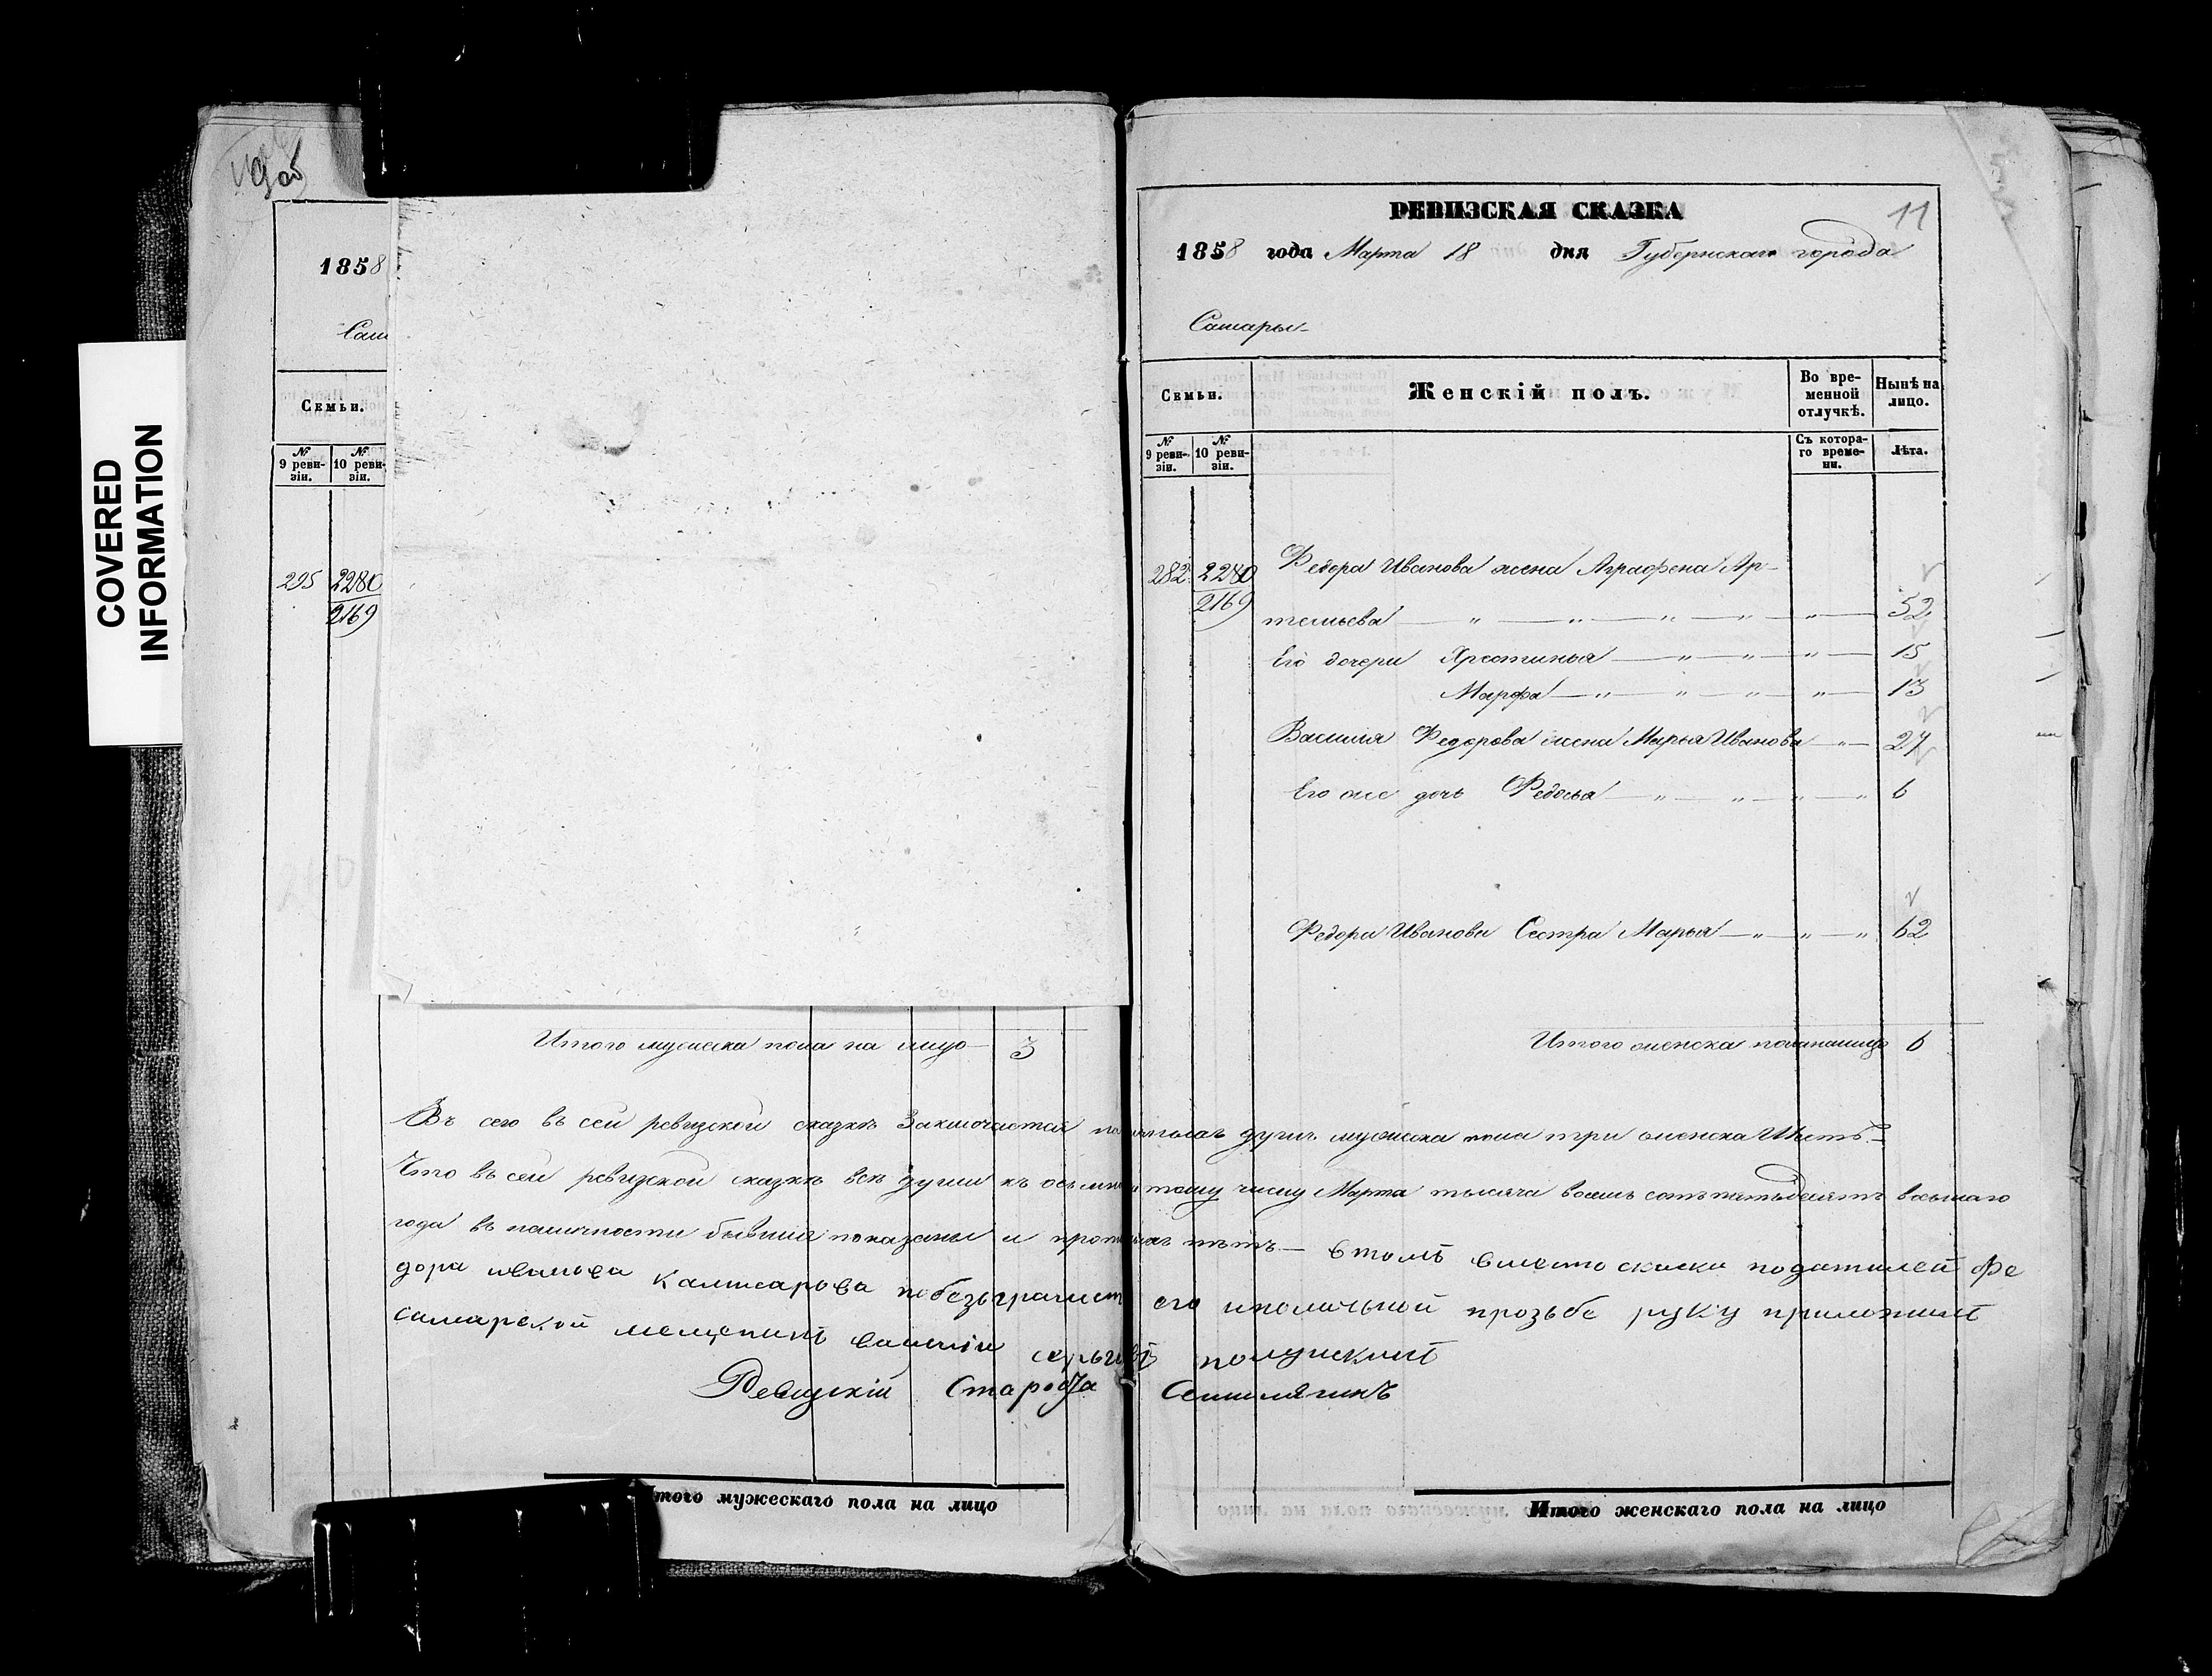 COVERED
INFORMATION
1858
Сам
Семьи.
№ 9 реви-зіи.
№ 10 реви-зіи.
295 2280
2169
Итого мужеска пола на лицо 3
РЕВИЗСКАЯ СКАЗКА
11
1858 года Марта 18 дня Губернскаго города
Самары
Семьи.
Женскій полъ.
Во вре-
менной
отлучкѣ.
Нынѣ на
лицо.
№ 9 реви-зіи.
№ 10 реви-зіи.
Съ котора-
го време-
ни.
Лѣта.
282 2280 Федора Иванова жена Аграфена Ар-
2169 темьева 52
Его дочери Христинья 15
Марфа 13
Василия Федорова жена Марья Иванова 27
Его же дочь Федосья 6
Федора Иванова Сестра Марья 62
Итого женска пола на лицо 6
Въ сего въ сей ревизской сказкѣ Заключается душъ мужеска пола три женска Шесть
Что въ сей ревизской сказкѣ всѣ души къ осьмнадцатому числу Марта тысяча восемь сотъ пятьдесятъ восьмаго
года въ наличности бывшия показаны и нѣтъ — втомъ вместо скаски подателей Фе
дора иванова Камисарова побезъграмот его иполичьной прозьбе руку приложилъ
самарской мещенинъ василій
Ревизкій Староста
Итого мужескаго пола на лицо
Итого женскаго пола на лицо